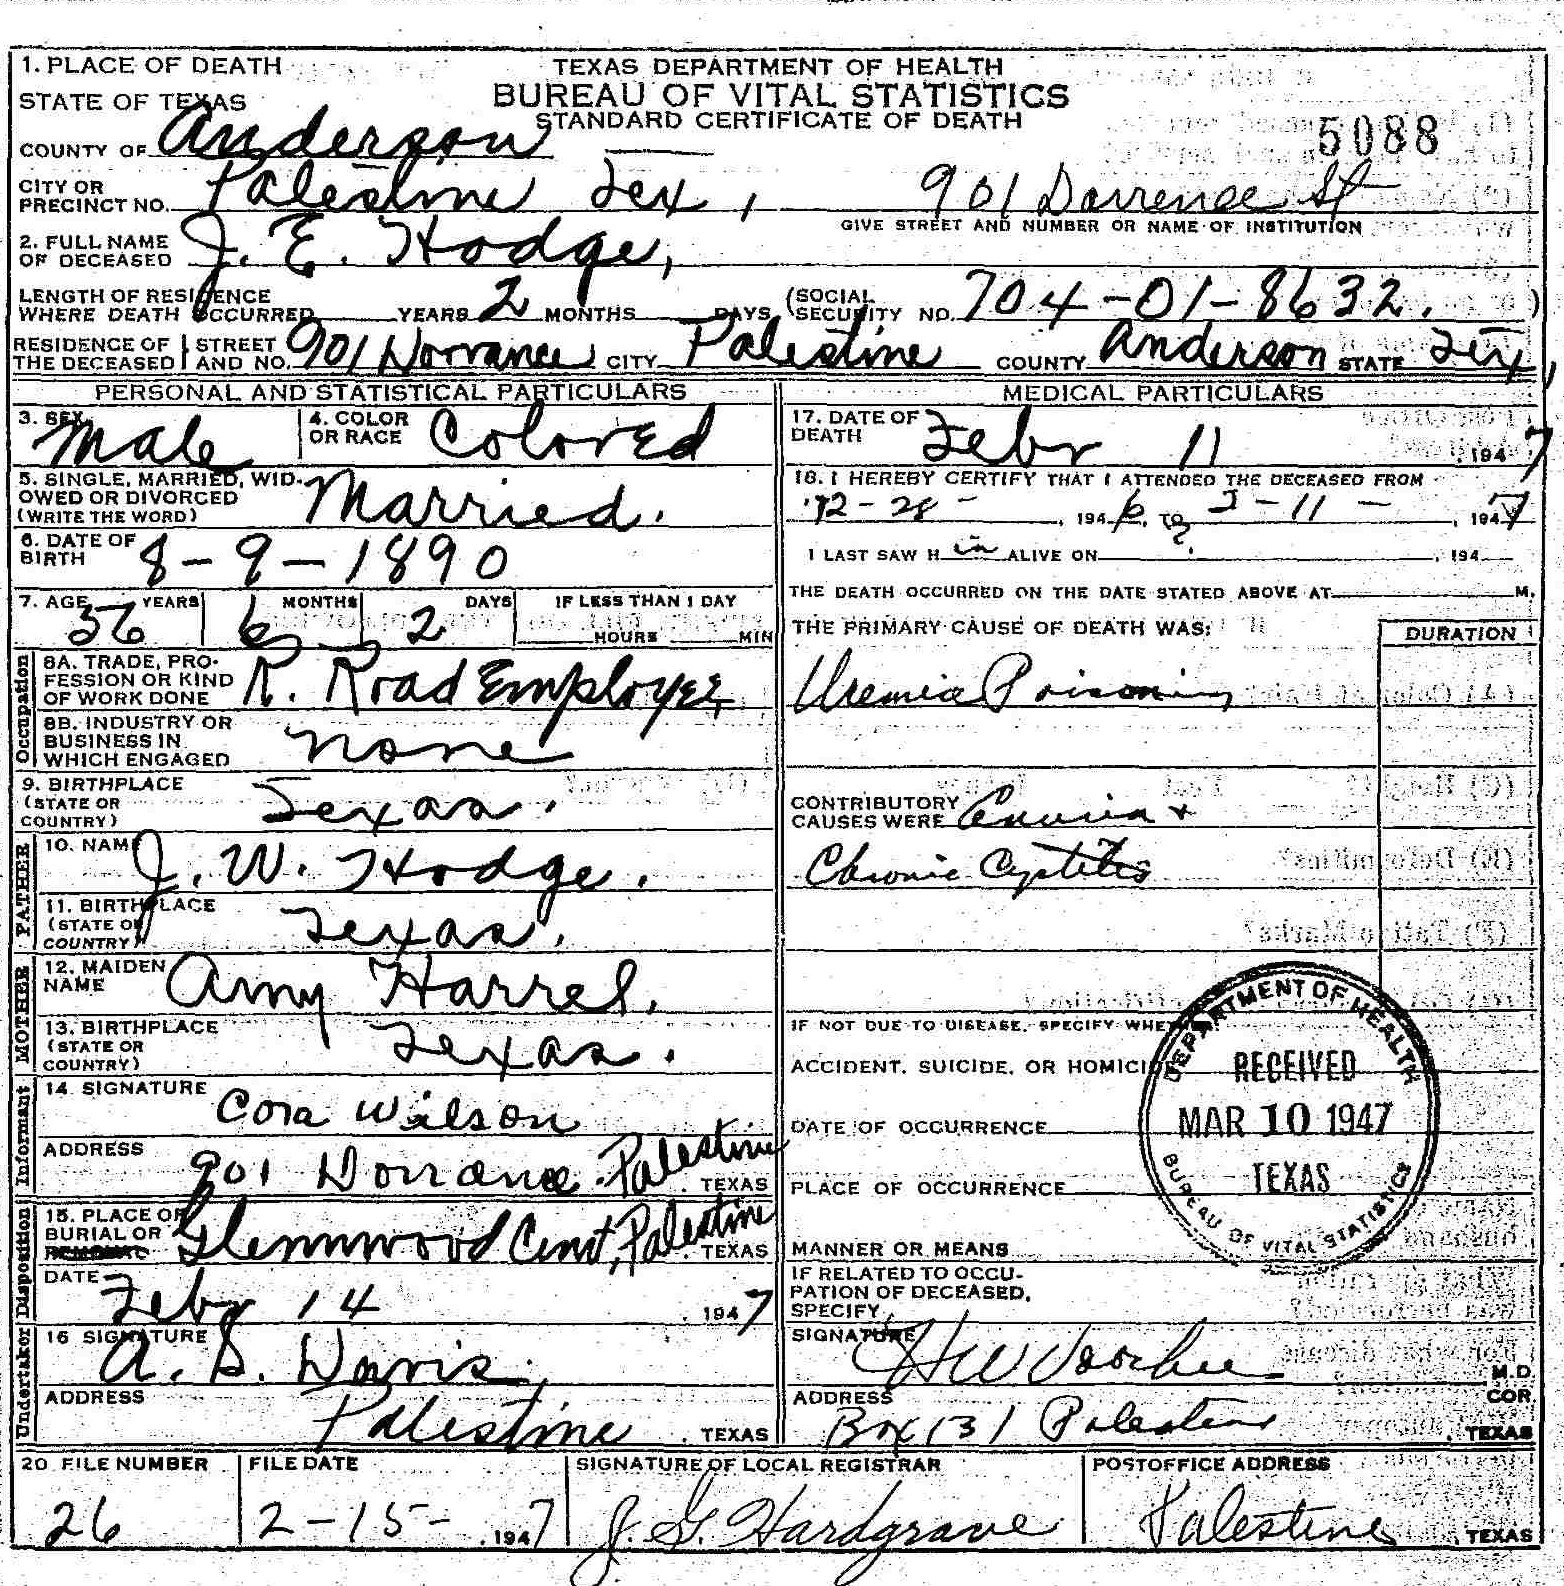 TEXAS DEPARTMENT OF HEALTH
BUREAU OF VITAL STATISTICS
STANDARD CERTIFICATE OF DEATH
5088
1. PLACE OF DEATH
STATE OF TEXAS
COUNTY OF Anderson
CITY OR PRECINCT NO. Palestine Tex, 901 Dorrence St
GIVE STREET AND NUMBER OR NAME OF INSTITUTION
2. FULL NAME OF DECEASED J. E. Hodge,
LENGTH OF RESIDENCE WHERE DEATH OCCURRED YEARS 2 MONTHS DAYS (SOCIAL SECURITY NO. 704-01-8632. )
RESIDENCE OF THE DECEASED STREET AND NO. 901 Dorrance CITY Palestine COUNTY Anderson STATE Tex,
PERSONAL AND STATISTICAL PARTICULARS
3. SEX Male 4. COLOR OR RACE Colored
5. SINGLE, MARRIED, WIDOWED OR DIVORCED (WRITE THE WORD) Married.
6. DATE OF BIRTH 8-9-1890
7. AGE 56 YEARS 6 MONTHS 2 DAYS IF LESS THAN 1 DAY HOURS MIN
Occupation
8A. TRADE, PROFESSION OR KIND OF WORK DONE R. Road Employee
8B. INDUSTRY OR BUSINESS IN WHICH ENGAGED none
9. BIRTHPLACE (STATE OR COUNTRY) Texas.
FATHER
10. NAME J. W. Hodge.
11. BIRTHPLACE (STATE OR COUNTRY) Texas.
MOTHER
12. MAIDEN NAME Amy Harrel.
13. BIRTHPLACE (STATE OR COUNTRY) Texas.
Informant
14. SIGNATURE Cora Wilson
ADDRESS 901 Dorrance. Palestine TEXAS
Disposition
15. PLACE OF BURIAL OR REMOVAL Glennwood Cemt, Palestine TEXAS
DATE Febr 14 1947
Undertaker
16 SIGNATURE A. D. Davis,
ADDRESS Palestine . TEXAS
MEDICAL PARTICULARS
17. DATE OF DEATH Febr 11 , 1947
18. I HEREBY CERTIFY THAT I ATTENDED THE DECEASED FROM
12-28- , 1946, TO 2-11- , 1947
I LAST SAW H im ALIVE ON , 194
THE DEATH OCCURRED ON THE DATE STATED ABOVE AT M.
THE PRIMARY CAUSE OF DEATH WAS: DURATION
Uremia Poisoning
CONTRIBUTORY CAUSES WERE +
Chronic Cystitis
IF NOT DUE TO DISEASE, SPECIFY WHE
ACCIDENT, SUICIDE, OR HOMICID
DATE OF OCCURRENCE
PLACE OF OCCURRENCE
MANNER OR MEANS
DEPARTMENT OF HEALTH
RECEIVED
MAR 10 1947
TEXAS
BUREAU OF VITAL STATISTICS
IF RELATED TO OCCUPATION OF DECEASED, SPECIFY
SIGNATURE H W Voorhee M.D. COR.
ADDRESS Box 131 Palestine , TEXAS
20 FILE NUMBER 26
FILE DATE 2-15- , 1947
SIGNATURE OF LOCAL REGISTRAR J. G. Hardgrave
POSTOFFICE ADDRESS Palestine , TEXAS